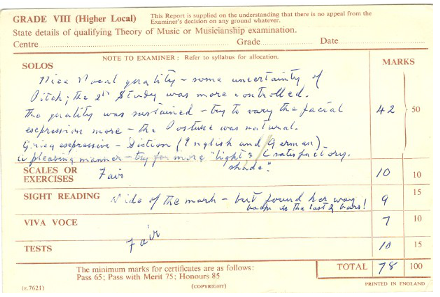 GRADE VIII (Higher Local)
This Report is supplied on the understanding that there is no appeal from the
Examiner's decision on any ground whatever.
State details of qualifying Theory of Music or Musicianship examination.
Centre Grade Date
NOTE TO EXAMINER: Refer to syllabus for allocation.
MARKS
SOLOS
Nice Vocal quality - some uncertainty of
Pitch; the 2nd Study was more controlled.
The quality was sustained - try to vary the facial
expressive more - the Posture was natural.
42 50
expressive - Diction (English and German)
in pleasing manner - try for more "light & satisfactory.
shade"
SCALES OR
EXERCISES
Fair
10 10
SIGHT READING
Wide of the mark - but found her way
back in the last 2 bars!
9 15
VIVA VOCE
7 10
TESTS
Fair
10 15
The minimum marks for certificates are as follows:
Pass 65; Pass with Merit 75; Honours 85
TOTAL 78 100
(v.7621)
(COPYRIGHT)
PRINTED IN ENGLAND